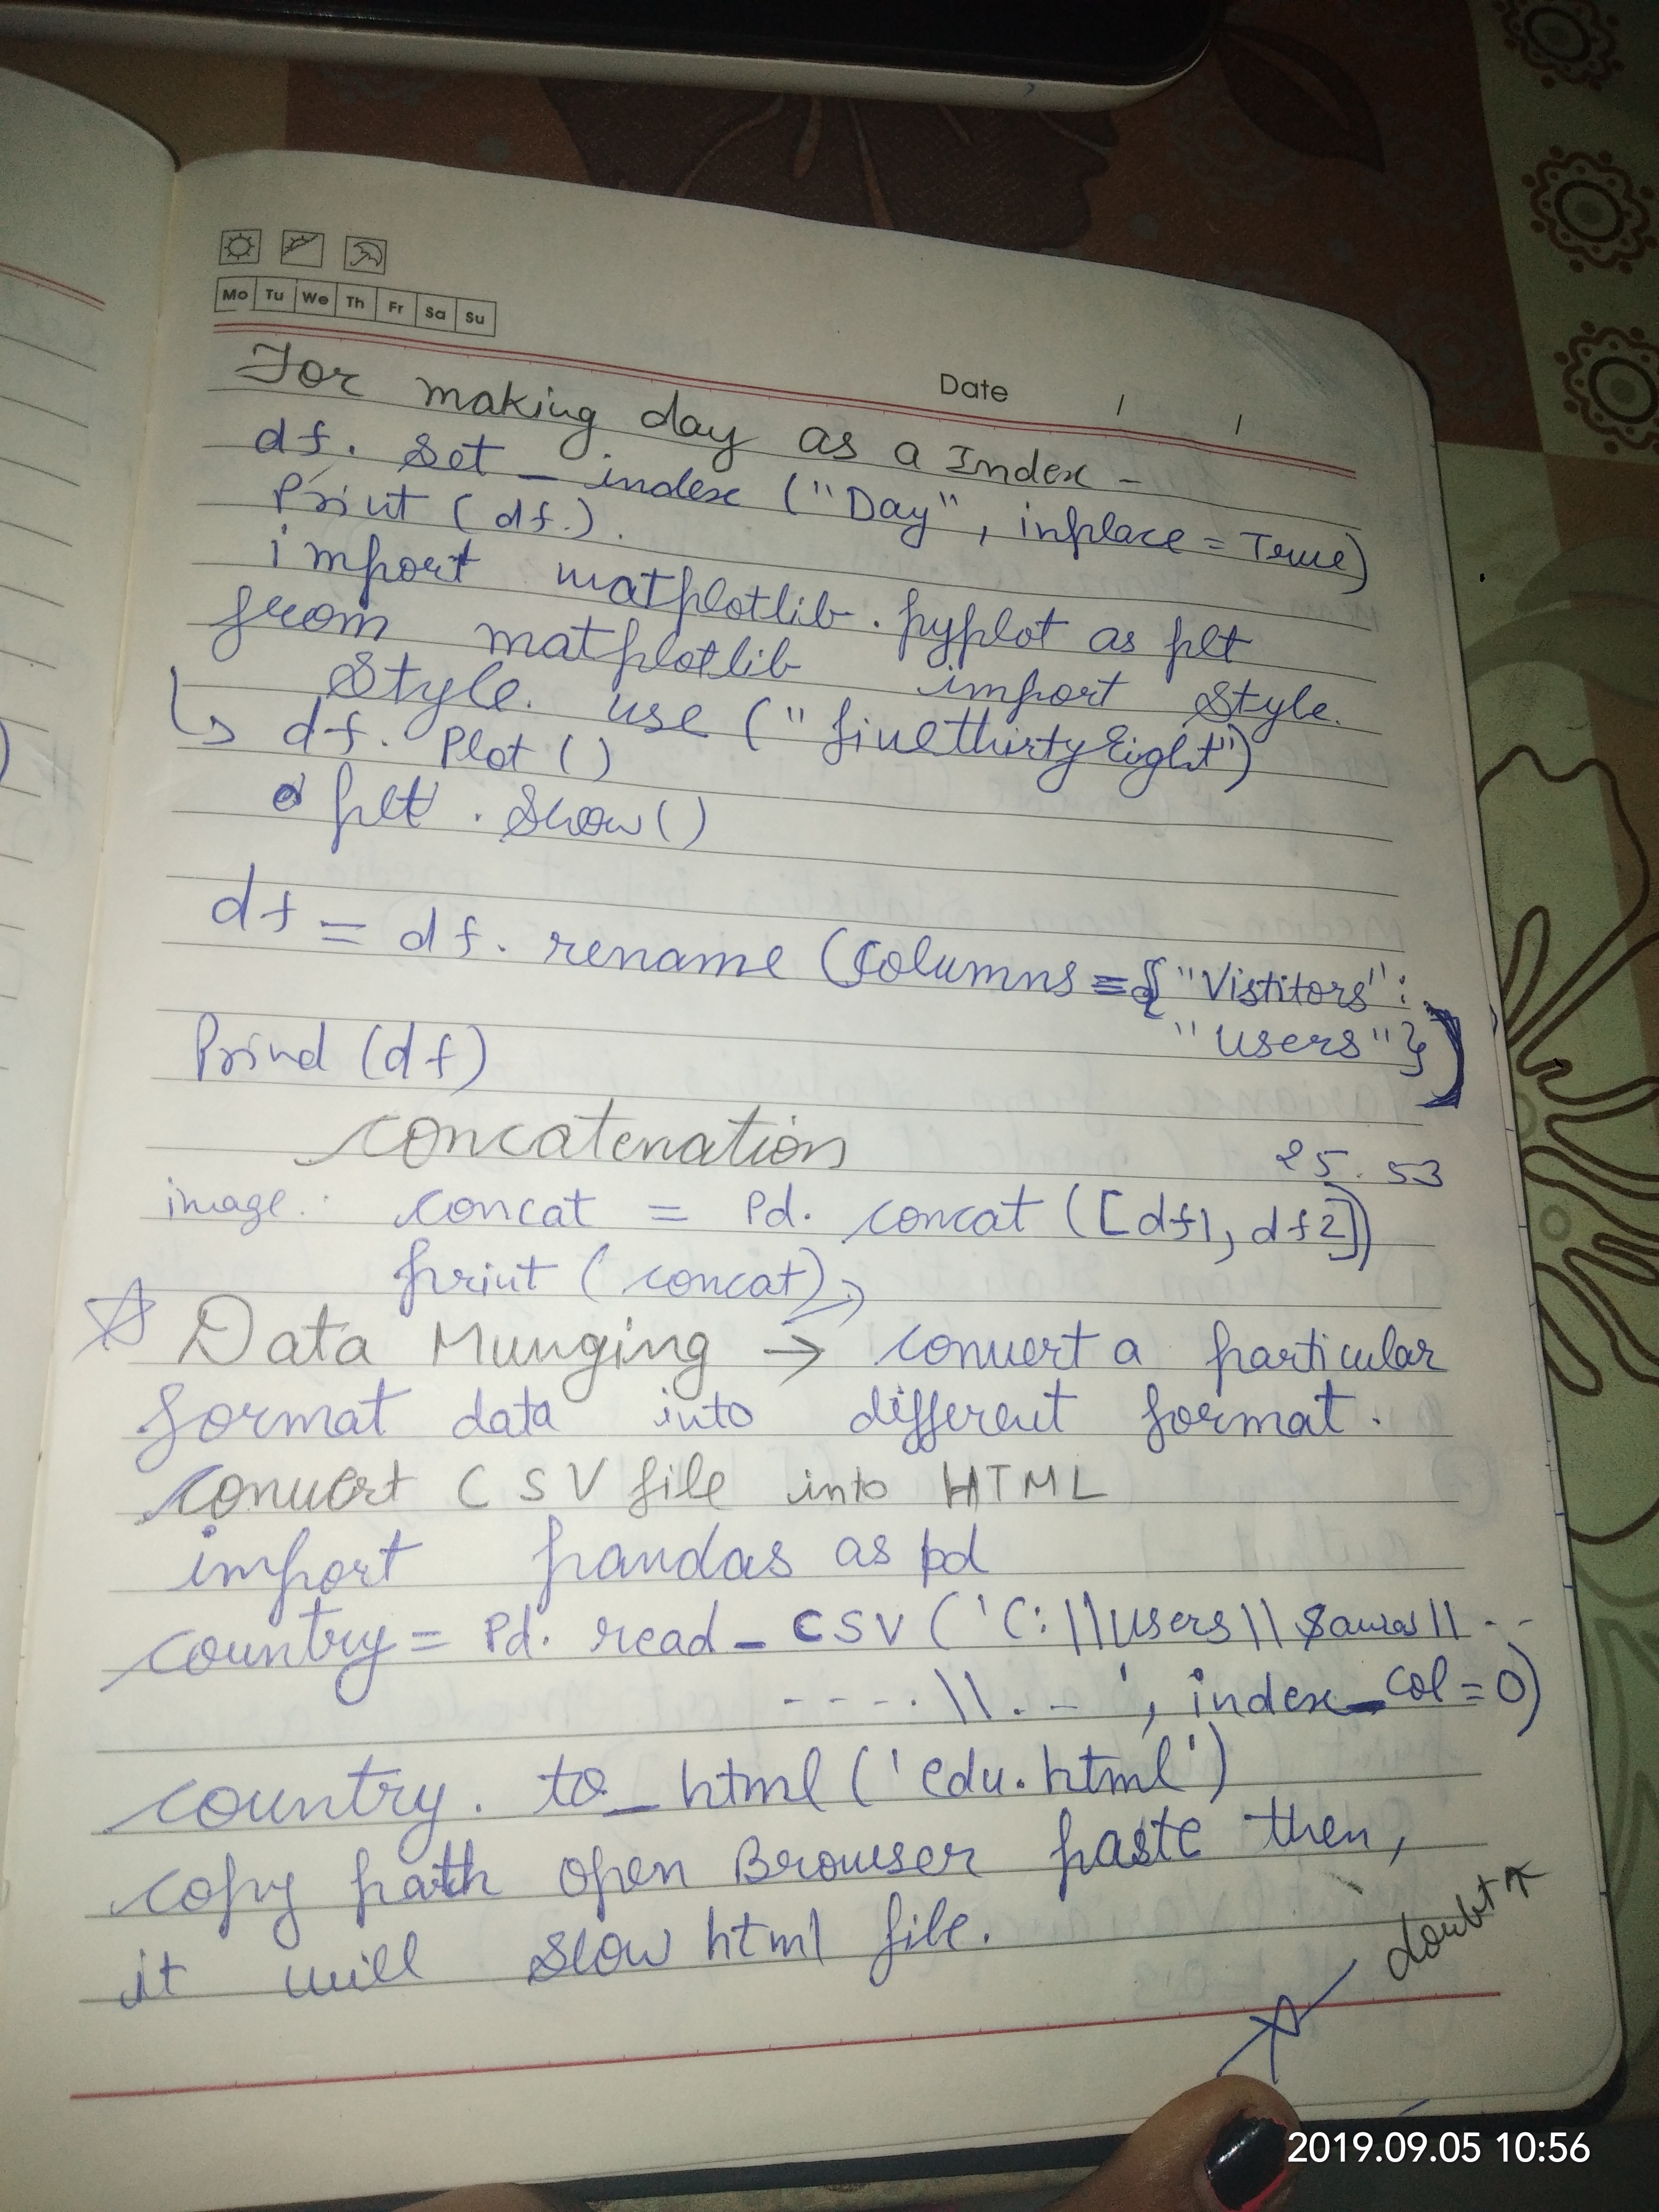 Mo Tu We Th Fr Sa Su
Date / /
For making day as a Index -
df. set_index ("Day", inplace = True)
Print (df.).
import matplotlib. pyplot as plt
from matplotlib import style.
style. use ("fivethirtyEight")
↳ df. Plot ()
plt. show()
df = df. rename (columns = { "Vistitors" :
"Users" })
Prind (df)
concatenation
25. 53
image. concat = Pd. concat ([df1, df2])
print (concat)
☆ Data Munging → convert a particular
format data into different format.
convert CSV file into HTML
import pandas as pd
country = Pd. read_CSV ('C:\\Users\\ \\ --
----.\\.-', index_col = 0)
country. to_html ('edu.html')
copy path open Browser paste then,
it will slow html file.
doubt
2019.09.05 10:56